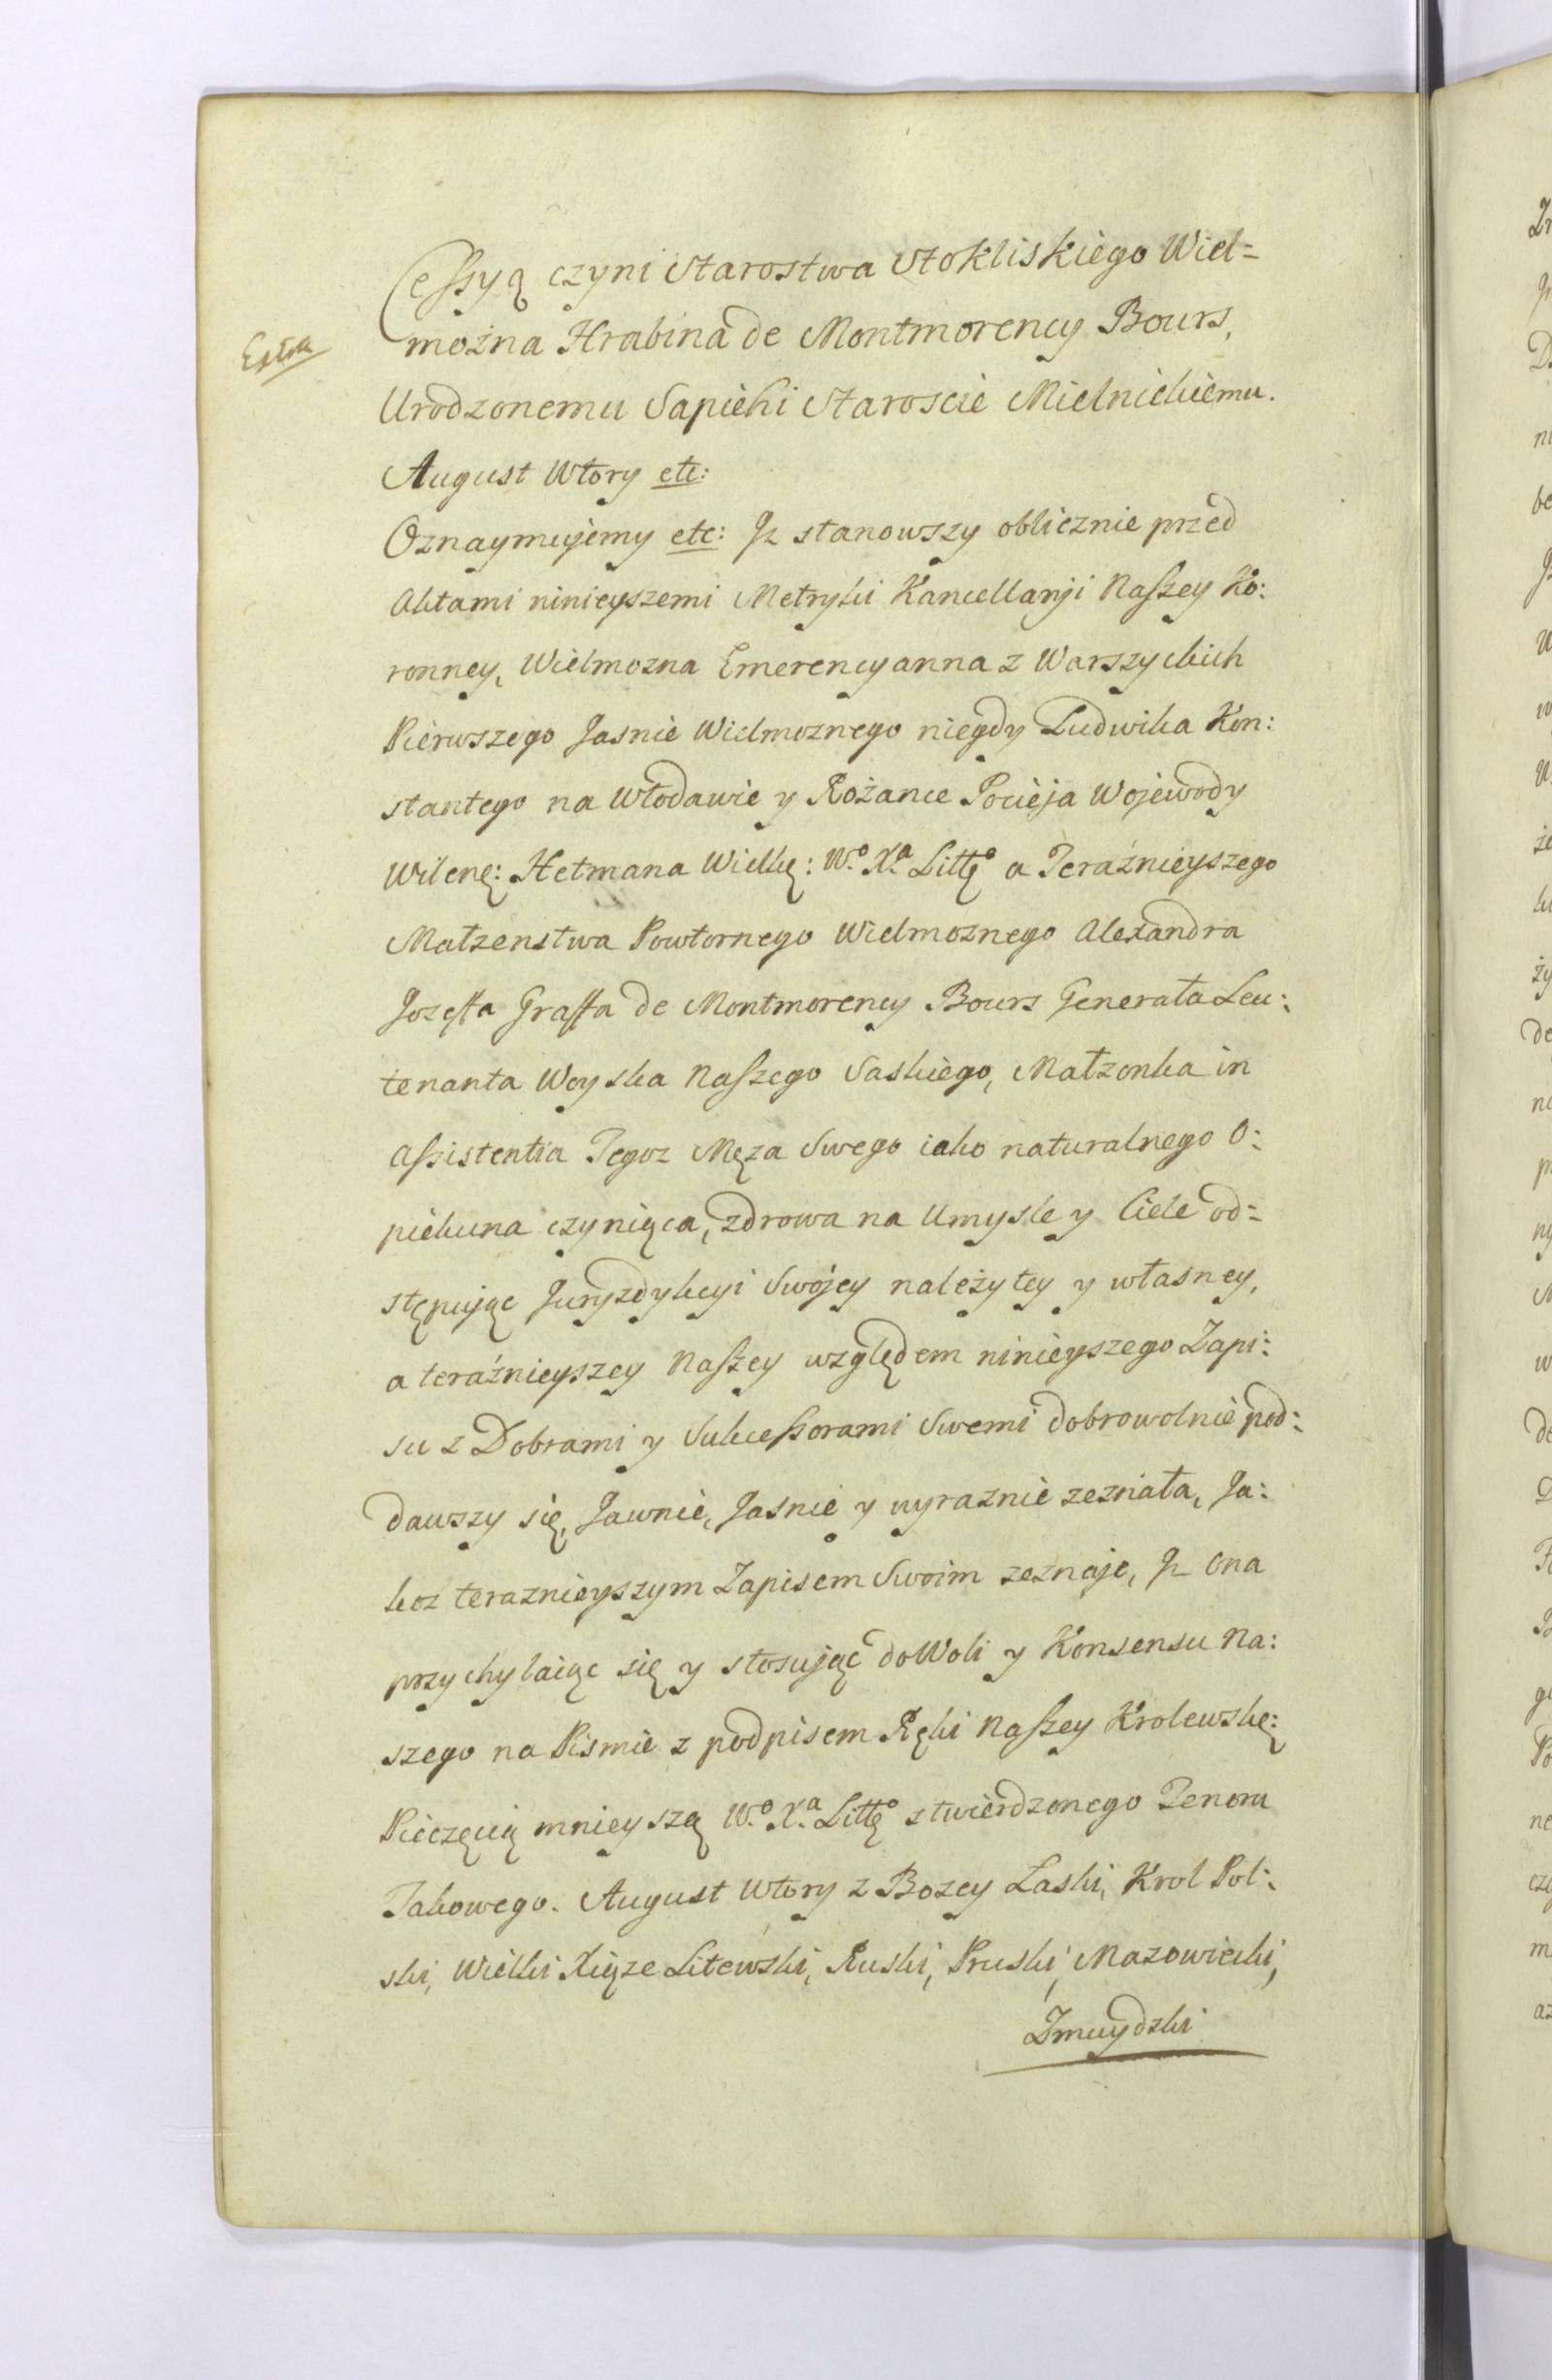 Cessyą czyni Starostwa Stokliskiego Wiel=
można Hrabina de Montmorency Bours,
Extra
Urodzonemu Sapiehi Staroscie Mielnickiemu.
August Wtory etc:
Oznaymujemy etc: Jż stanowszy oblicznie przed
Aktami ninieyszemi Metryki Kancellaryi Naszey Ko:
ronney, Wielmozna Emerencyanna z Warszyckich
Pierwszego Jasnie Wielmoznego niegdy Ludwika Kon:
stantego na Włodawie y Rożance Pocieja Wojewody
Wileńę: Hetmana Wielkę: Wo. Xa. Littgo a Teraźnieyszego
Małzenstwa Powtornego Wielmoznego Alexandra
Jozeffa Graffa de Montmorency Bours Generała Leu:
tenanta Woyska Naszego Saskiego, Małzonka in
Assistentia Tegoz Męza Swego iako naturalnego O:
piekuna czyniąca, zdrowa na Umysle y Ciele od=
stępując Juryzdykcyi Swojey należytey y własney,
a teraźnieyszey Naszey względem ninieyszego Zapi:
su z Dobrami y Sukcessorami Swemi dobrowolnie pod:
dawszy się, Jawnie, Jasnie y wyraznie zeznała, Ja:
koz teraznieyszym Zapisem Swoim zeznaje, Jż Ona
przychylaiąc się y stosując do Woli y Konsensu Na:
szego na Pismie z podpisem Ręki Naszey Krolewskę:
Pieczęcią mnieyszą Wo. Xa. Littgo stwierdzonego Tenoru
Takowego. August Wtory z Bozey Łaski, Krol Pol:
ski, Wielki Xiąze Litewski, Ruski, Pruski, Mazowiecki,
Zmuydzki